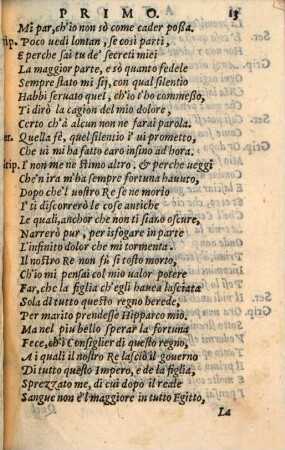 PRIMO. 13
Mi par, ch'io non sò come cader possa.
rip. Poco uedi lontan, se così parti,
E perche sai tu de' secreti miei
La maggior parte, e sò quanto fedele
Sempre stato mi sij, con qual silentio
Habbi seruato quel, ch'io t'ho commesso,
Ti dirò la cagion del mio dolore,
Certo ch'à alcun non ne farai parola.
er. Quella fè, quel silentio i' ui prometto,
Che ui m'ha fatto caro insino ad hora.
rip. I' non me ne stimo altro, & perche ueggi
Che'n ira m'ha sempre fortuna hauuto,
Dopo che'l uostro Re se ne morio
I' ti discorrerò le cose antiche
Le quali, anchor che non ti siano oscure,
Narrerò pur, per isfogare in parte
L'infinito dolor che mi tormenta.
Il nostro Re non fù sì tosto morto,
Ch'io mi pensai col mio ualor potere
Far, che la figlia ch'egli hauea lasciata
Sola di tutto questo regno herede,
Per marito prendesse Hipparco mio.
Ma nel piu bello sperar la fortuna
Fece, ch'i Consiglier di questo regno,
A i quali il nostro Re lasciò il gouerno
Di tutto questo Impero, e de la figlia,
Sprezzato me, di cui dopo il reale
Sangue non è'l maggiore in tutto Egitto,
La